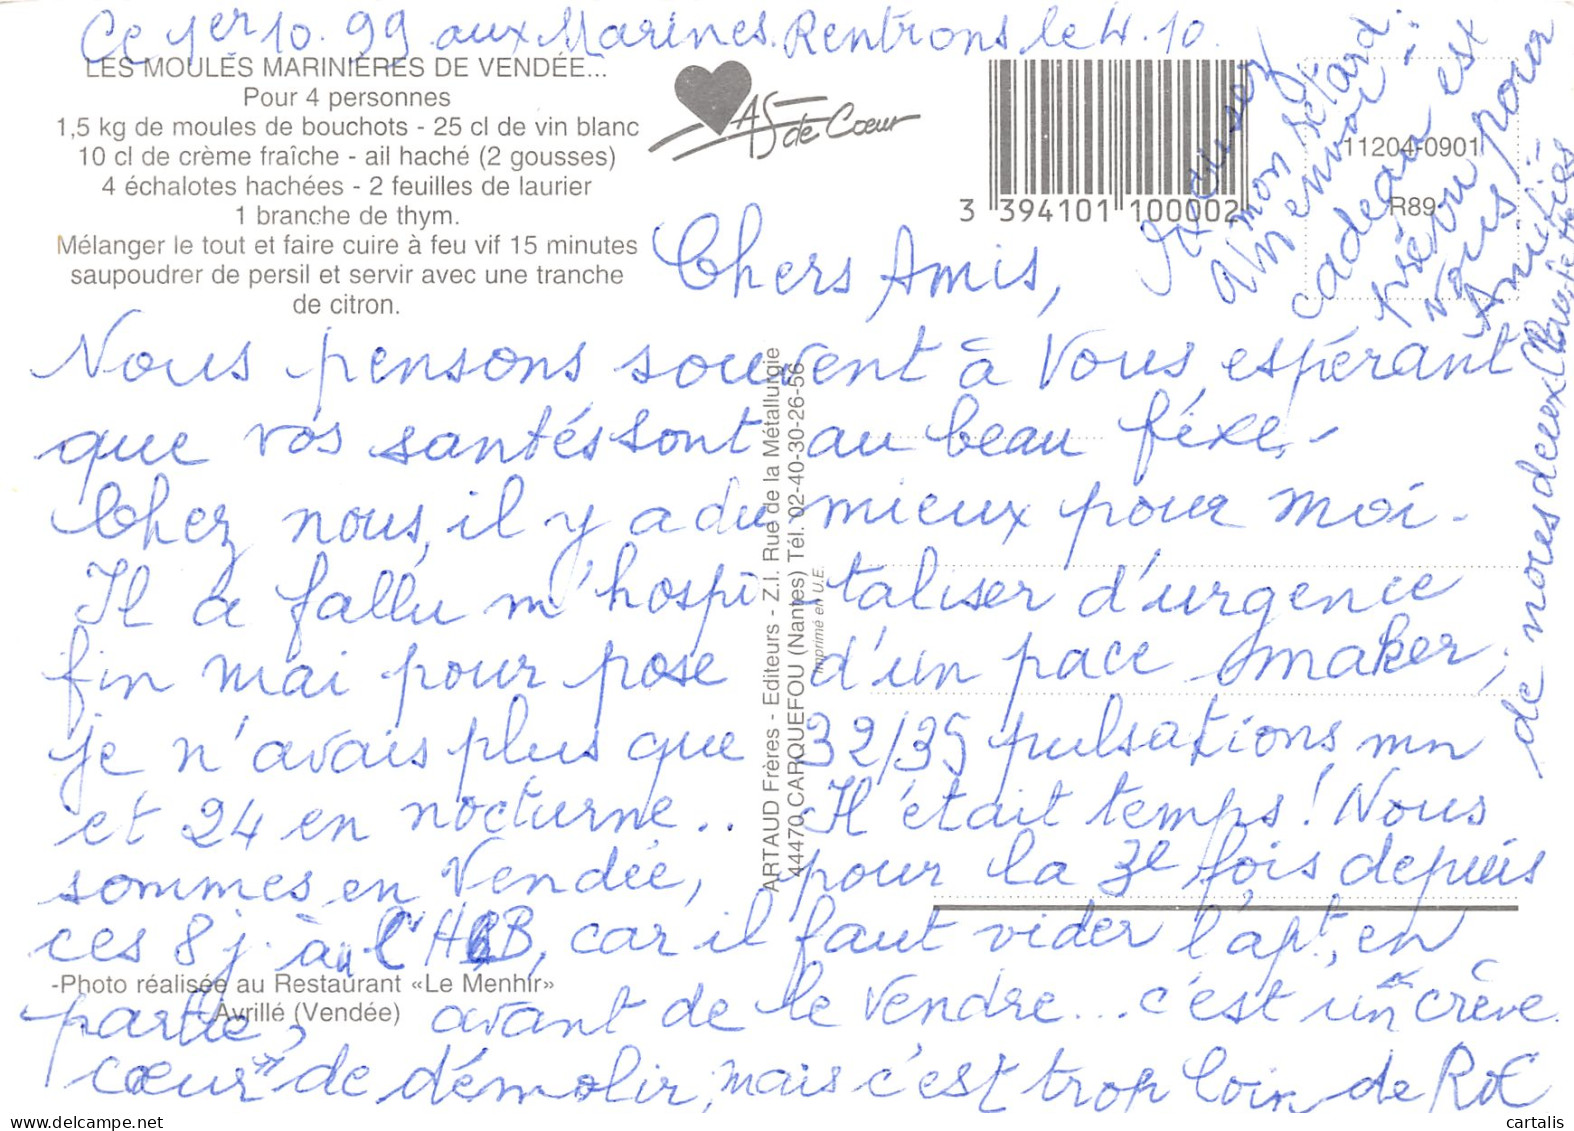 Ce 1er 10. 99 aux Marines. Rentrons le 4. 10.
LES MOULES MARINIÈRES DE VENDÉE...
Pour 4 personnes
1,5 kg de moules de bouchots - 25 cl de vin blanc
10 cl de crème fraîche - ail haché (2 gousses)
4 échalotes hachées - 2 feuilles de laurier
1 branche de thym.
Mélanger le tout et faire cuire à feu vif 15 minutes
saupoudrer de persil et servir avec une tranche
de citron.
AS de Cœur
3 394101 100002
11204-0901
R89
Chers Amis,
Nous pensons souvent à Vous espérant
que vos santés sont au beau féxe,-
Chez nous, il y a du mieux pour moi-
Il a fallu m'hospi-taliser d'urgence
fin mai pour pose d'un pace smaker,
je n'avais plus que 32/35 pulsations mn
et 24 en nocturne.. Il était temps! Nous
sommes en Vendée, pour la 3e fois depuis
ces 8 j. à l'H B, car il faut vider l'apt, en
partie, avant de le vendre... c'est un "crève
cœur" de démolir, mais c'est trop loin de
-Photo réalisée au Restaurant «Le Menhir»
Avrillé (Vendée)
ARTAUD Frères - Editeurs - Z.I. Rue de la Métallurgie
44470 CARQUEFOU (Nantes) Tél. 02-40-30-26-56
Imprimé en U.E.
Excusez
mon retard
envoi
cadeau est
prévu pour
vous
Amitiés
de nous deux
cartalis